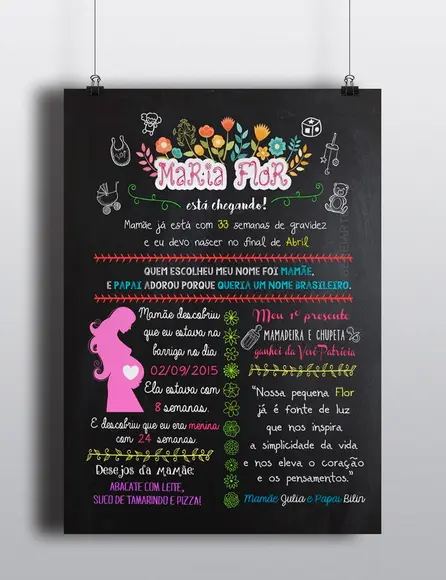 MaRia FloR
está chegando!
Mamãe já está com 33 semanas de gravidez
e eu devo nascer no final de Abril
QUEM ESCOLHEU MEU NOME FOI MAMÃE,
E PAPAI ADOROU PORQUE QUERIA UM NOME BRASILEIRO.
Mamãe descobriu
que eu estava na
barriga no dia
02/09/2015
Ela estava com
8 semanas.
E descobriu que eu era menina
com 24 semanas.
Desejos da Mamãe:
ABACATE COM LEITE,
SUCO DE TAMARINDO E PIZZA!
Meu 1º presente
MAMADEIRA E CHUPETA
ganhei da Vovó Patrícia
"Nossa pequena Flor
já é fonte de luz
que nos inspira
a simplicidade da vida
e nos eleva o coração
e os pensamentos."
Mamãe Julia e Papai Bilin